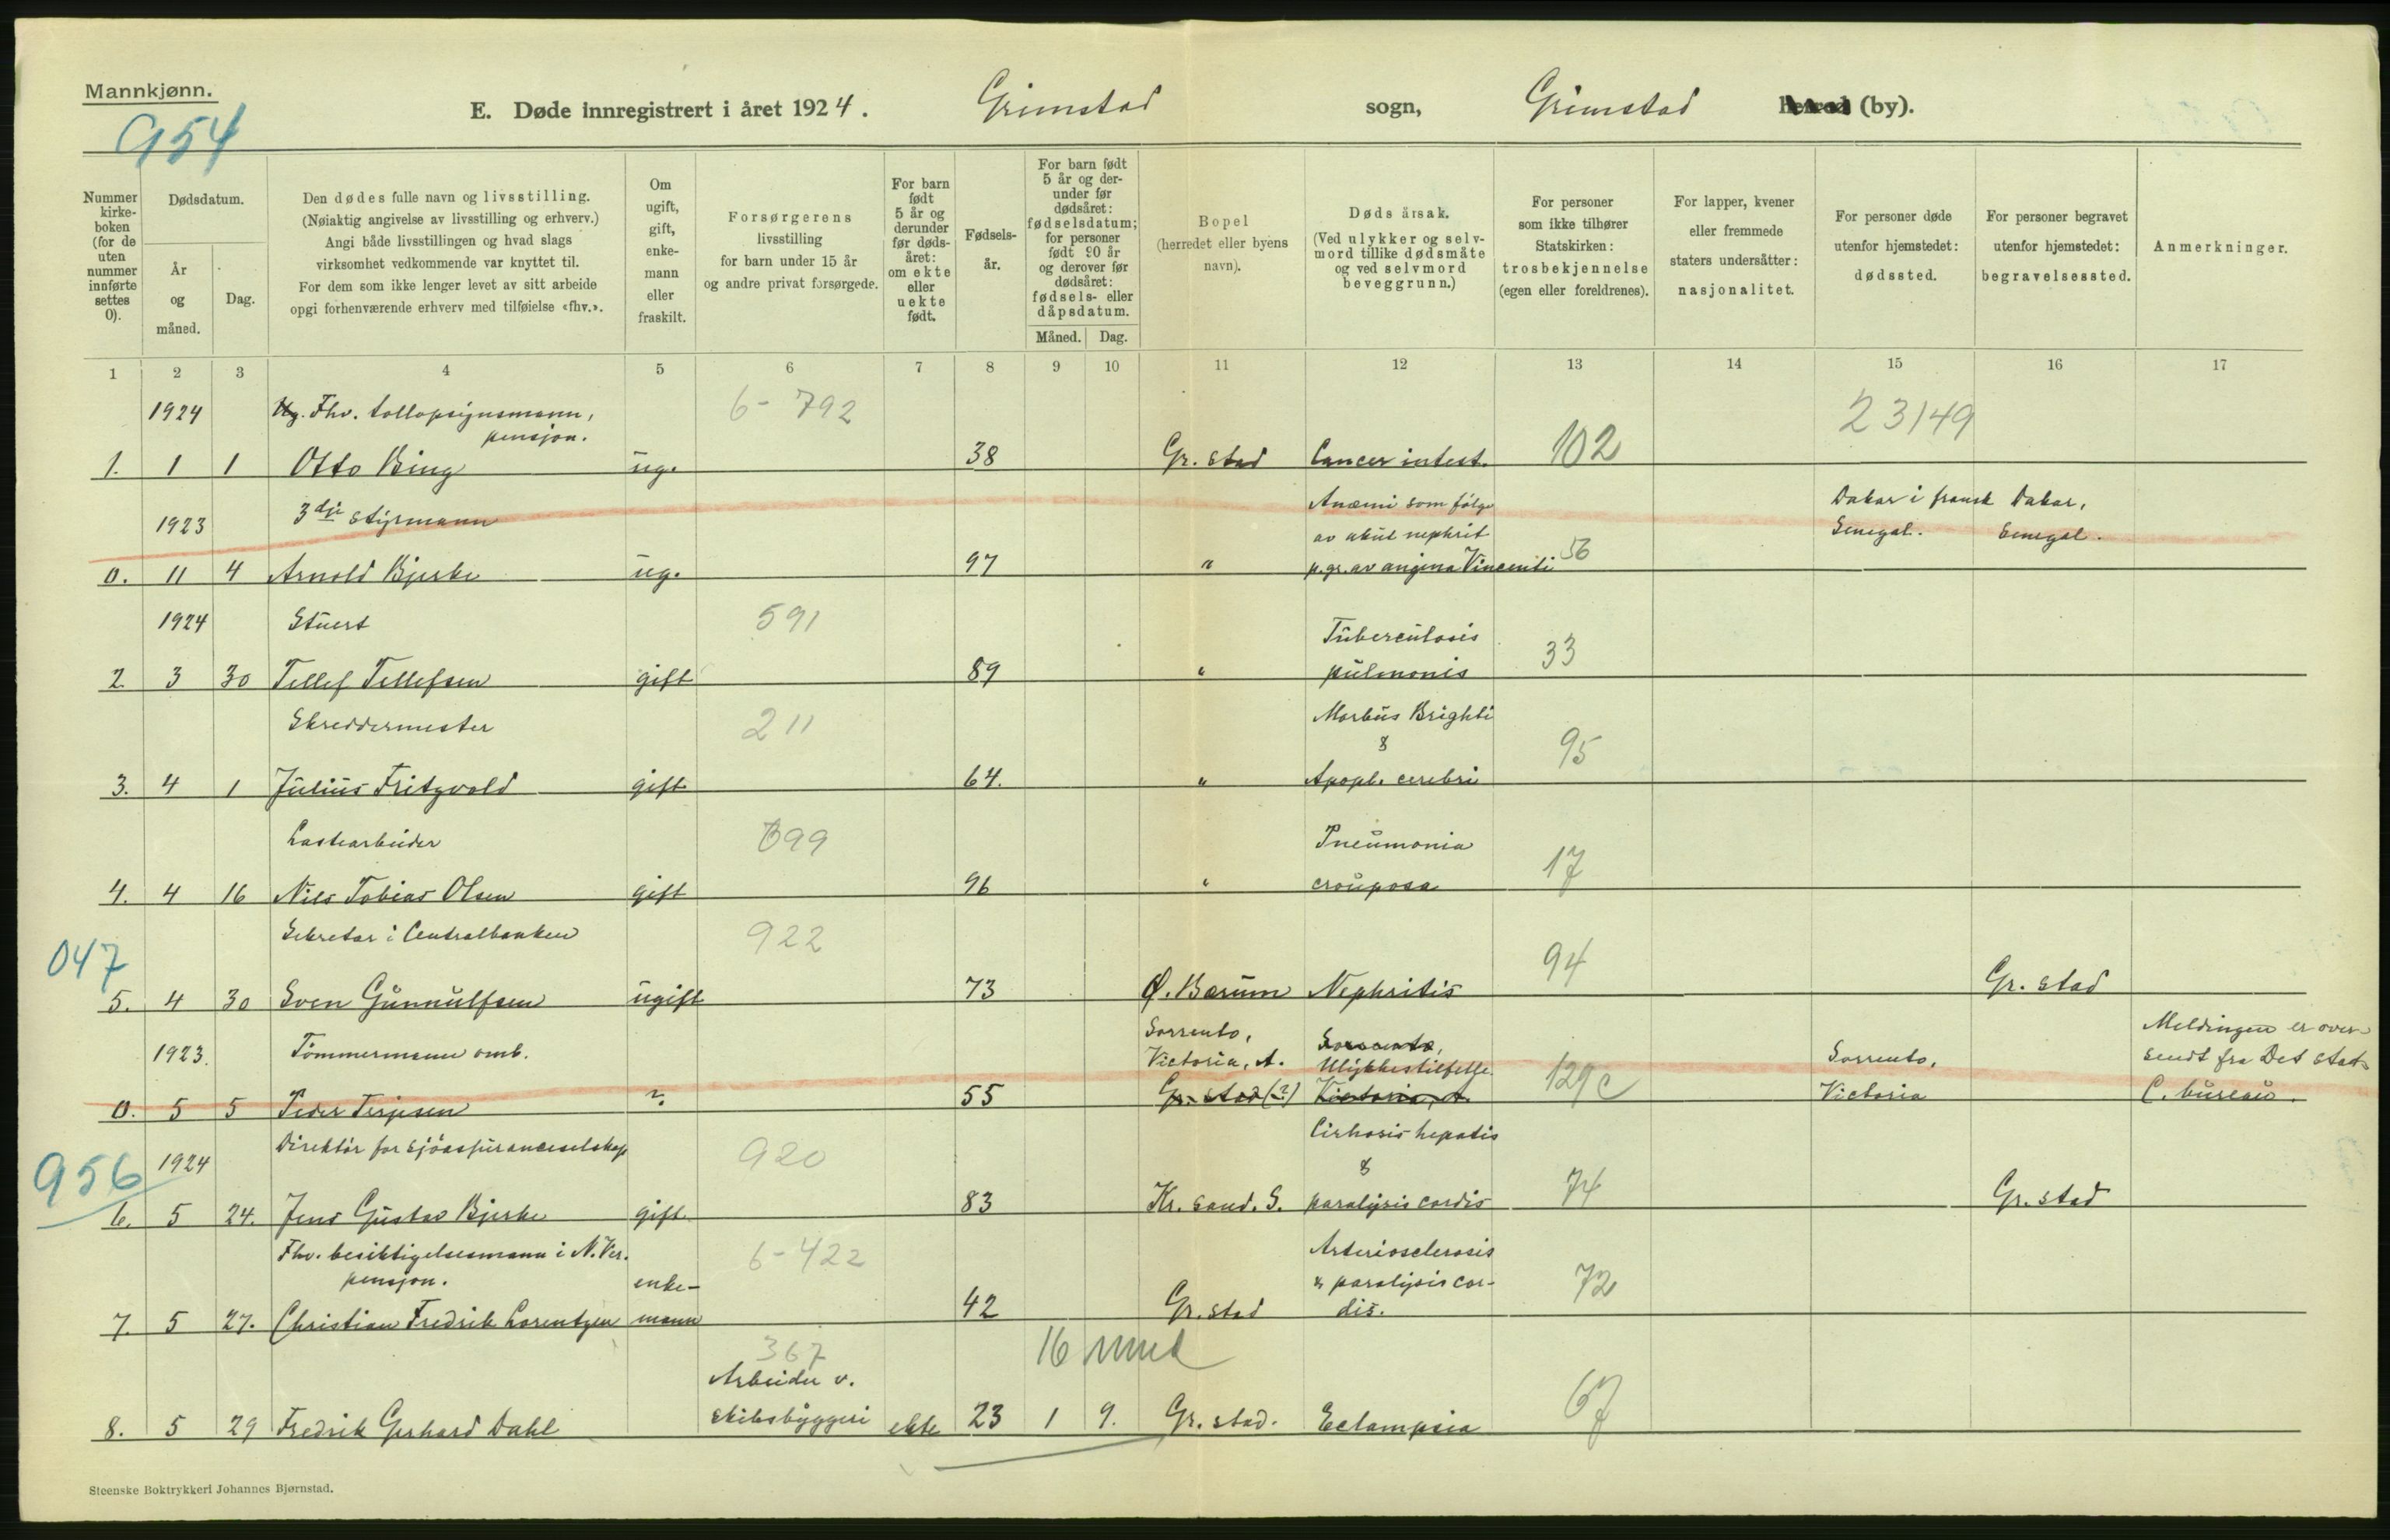 Mannkjønn.
954
E. Døde innregistrert i året 1924. Grimstad sogn, Grimstad herred (by).
Nummer kirke- boken (for de uten nummer innførte settes 0).
Dødsdatum.
År og måned.
Dag.
Den dødes fulle navn og livsstilling.
(Nøiaktig angivelse av livsstilling og erhverv.)
Angi både livsstillingen og hvad slags
virksomhet vedkommende var knyttet til.
For dem som ikke lenger levet av sitt arbeide
opgi forhenværende erhverv med tilføielse «fhv.».
Om ugift, gift, enke- mann eller fraskilt.
Forsørgerens
livsstilling
for barn under 15 år
og andre privat forsørgede.
For barn født 5 år og derunder før døds- året: om ekte eller uekte født.
Fødsels- år.
For barn født 5 år og der- under før dødsåret: fødselsdatum; for personer født 90 år og derover før dødsåret: fødsels- eller dåpsdatum.
Måned. Dag.
Bopel
(herredet eller byens
navn).
Døds årsak.
(Ved ulykker og selv-
mord tillike dødsmåte
og ved selvmord
beveggrunn.)
For personer
som ikke tilhører
Statskirken:
trosbekjennelse
(egen eller foreldrenes).
For lapper, kvener
eller fremmede
staters undersåtter:
nasjonalitet.
For personer døde
utenfor hjemstedet:
dødssted.
For personer begravet
utenfor hjemstedet:
begravelsessted.
Anmerkninger.
1 2 3 4 5 6 7 8 9 10 11 12 13 14 15 16 17
1924 Ug. Fhv. tollopsynsmann, 6- 792 23149
pensjon.
1. 1 1 Otto Bing ug. 38 Gr. stad Cancer intest. 102
1923 3dje styrmann Anæmi som følge Dakar i fransk Dakar,
av akut nephrit Senegal. Senegal.
0. 11 4 Arnold Bjerke ug. 97 " p.gr. av angina Vincenti 56
1924 Stuert 591 Tuberculosis
2 3 30 Tellef Tellefsen gift 89 " pulmonis 33
Skreddermester 211 Morbus Brighti
&
3. 4 1 Julius Fritzvold gift 64. " Apopl. cerebri 95
Lastearbeider 699 Pneumonia
4. 4 16 Nils Tobias Olsen gift 96 " crouposa 17
Sekretær i Centralbanken 922
047
5. 4 30 Sven Gunnulfsen ugift 73 Ø. Bærum Nephritis 94 Gr. stad
1923. Tømmermann omb. Sorrento, Sorrento, Sorrento, Meldingen er over-
Victoria, A. Ulykkestilfelle sendt fra Det stat.
0. 5 5 Peder Terjesen ? 55 Gr. stad (?) Victoria, A. 129c Victoria C. bureau.
1924 Direktør for sjøassuranceselskap 920 Cirhosis hepatis
956 &
6. 5 24. Jens Gustav Bjerke gift 83 Kr. sand. S. paralysis cordis 74 Gr. stad
Fhv. besiktigelsesmann i N. Ver. 6-422 Arteriosclerosis
pensjon. enke- & paralysis cor-
7. 5 27. Christian Fredrik Lorentzen mann 42 Gr. stad dis. 72
367 16 mnd
Arbeider v.
8. 5 29 Fredrik Gerhard Dahl skibsbyggeri ekte 23 1 9. Gr. stad. Eclampsia 67
Steenske Boktrykkeri Johannes Bjørnstad.